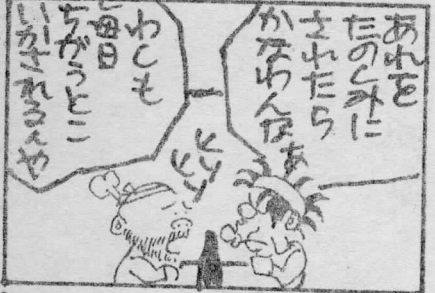 あれを
たのしみに
されたら
かなわんなぁ
わしも
毎日
ちがうとこ
いかされるんや